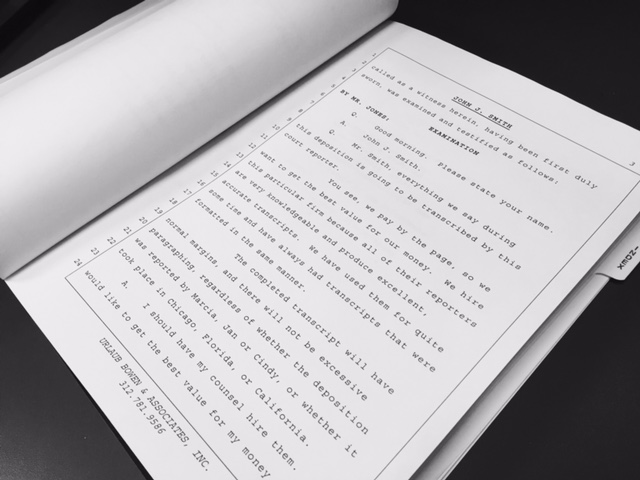 1 JOHN J. SMITH
2 called as a witness herein, having been first duly
3 sworn, was examined and testified as follows:
4 EXAMINATION
5 BY MR. JONES:
6 Q. Good morning. Please state your name.
7 A. John J. Smith.
8 Q. Mr. Smith, everything we say during
9 this deposition is going to be transcribed by this
10 court reporter.
11 You see, we pay by the page, so we
12 want to get the best value for our money. We hire
13 this particular firm because all of their reporters
14 are very knowledgeable and produce excellent,
15 accurate transcripts. We have used them for quite
16 some time and have always had transcripts that were
17 formatted in the same manner.
18 The completed transcript will have
19 normal margins and there will not be excessive
20 paragraphing, regardless of whether the deposition
21 was reported by Marcia, Jan or Cindy, or whether it
22 took place in Chicago, Florida, or California.
23 A. I should have my counsel hire them.
24 would like to get the best value for my money
URLAUB BOWEN & ASSOCIATES, INC.
312.781.9586